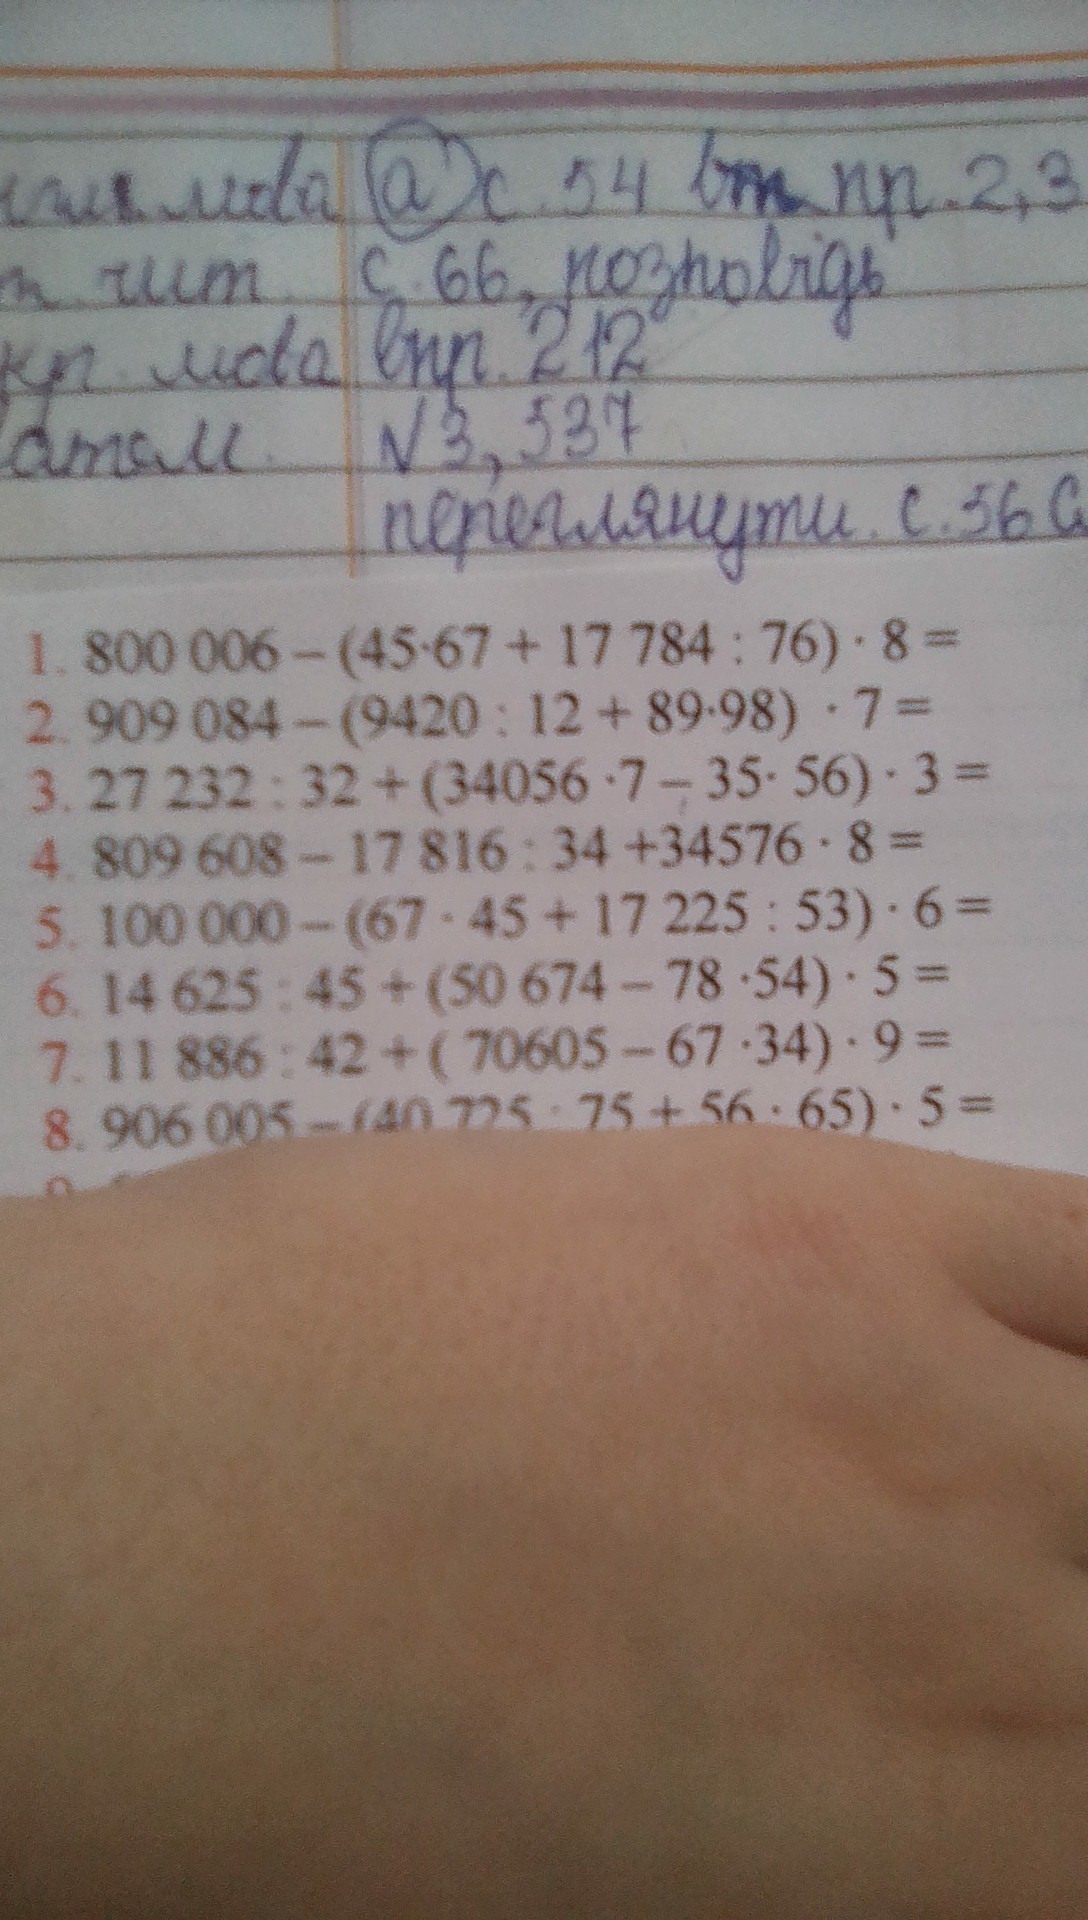 мова (а) с. 54 вт пр. 2, 3
чит. с. 66, розповідь
мова впр. 212
№3, 537
переглянути. с. 56
1. 800 006 – (45·67 + 17 784 : 76) · 8 =
2. 909 084 – (9420 : 12 + 89·98) · 7 =
3. 27 232 : 32 + (34056 ·7 – 35· 56) · 3 =
4. 809 608 – 17 816 : 34 +34576 · 8 =
5. 100 000 – (67 · 45 + 17 225 : 53) · 6 =
6. 14 625 : 45 + (50 674 – 78 ·54) · 5 =
7. 11 886 : 42 + ( 70605 – 67 ·34) · 9 =
8. 906 005 – (40 725 : 75 + 56 · 65) · 5 =